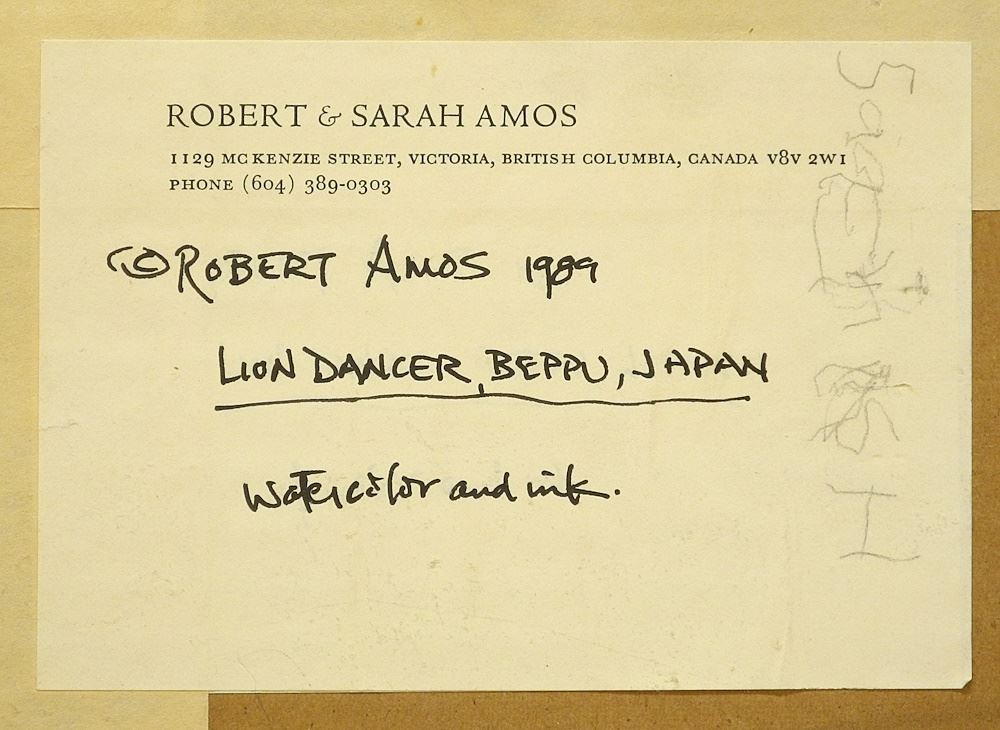 ROBERT & SARAH AMOS
1129 MCKENZIE STREET, VICTORIA, BRITISH COLUMBIA, CANADA V8V 2W1
PHONE (604) 389-0303
© ROBERT AMOS 1989
LION DANCER, BEPPU, JAPAN
watercolor and ink.